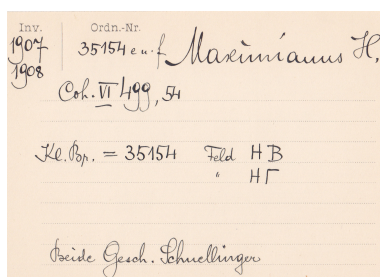 Inv. Ordn.-Nr.
1907 35154 e u. f Maximianus H.
1908
Coh. VI 499, 54
Kl. Br. = 35154 Feld H B
" H Γ
Beide Gesch. Schnellinger